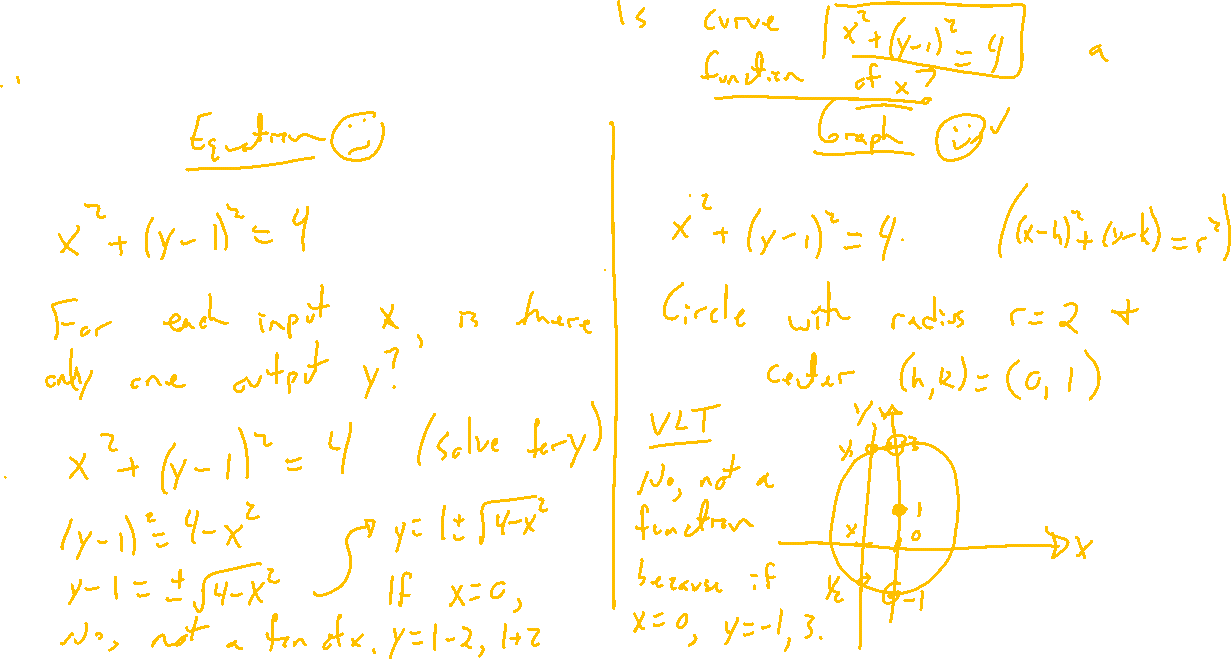 Is curve x² + (y-1)² = 4 a
function of x?
Equation
x² + (y-1)² = 4
For each input x, is there
only one output y?
x² + (y-1)² = 4 (solve for y)
(y-1)² = 4-x²
y-1 = ± √4-x²
y = 1 ± √4-x²
If x=0,
No, not a fcn of x. y=1-2, 1+2
Graph ✓
x² + (y-1)² = 4. ((x-h)² + (y-k) = r²)
Circle with radius r=2 +
center (h,k) = (0, 1)
VLT
No, not a
function
because if
x=0, y=-1, 3.
y
y₁
3
1
x
0
x
y₂
-1